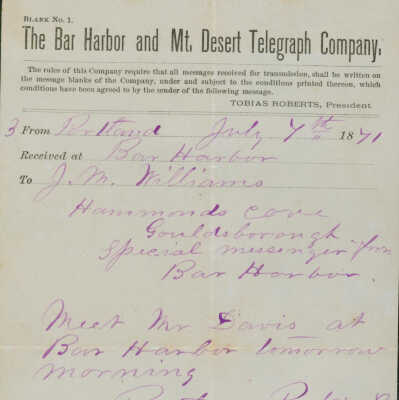 BLANK No. 1.
The Bar Harbor and Mt. Desert Telegraph Company.
The rules of this Company require that all messages received for transmission, shall be written on
the message blanks of the Company, under and subject to the conditions printed thereon, which
conditions have been agreed to by the sender of the following message.
TOBIAS ROBERTS, President
3 From Portland July 7th 1871
Received at Bar Harbor
To J. M. Williams
Hammonds cove
Gouldsborough
Special messenger from
Bar Harbor.
Meet Mr Davis at
Bar Harbor tomorrow
morning